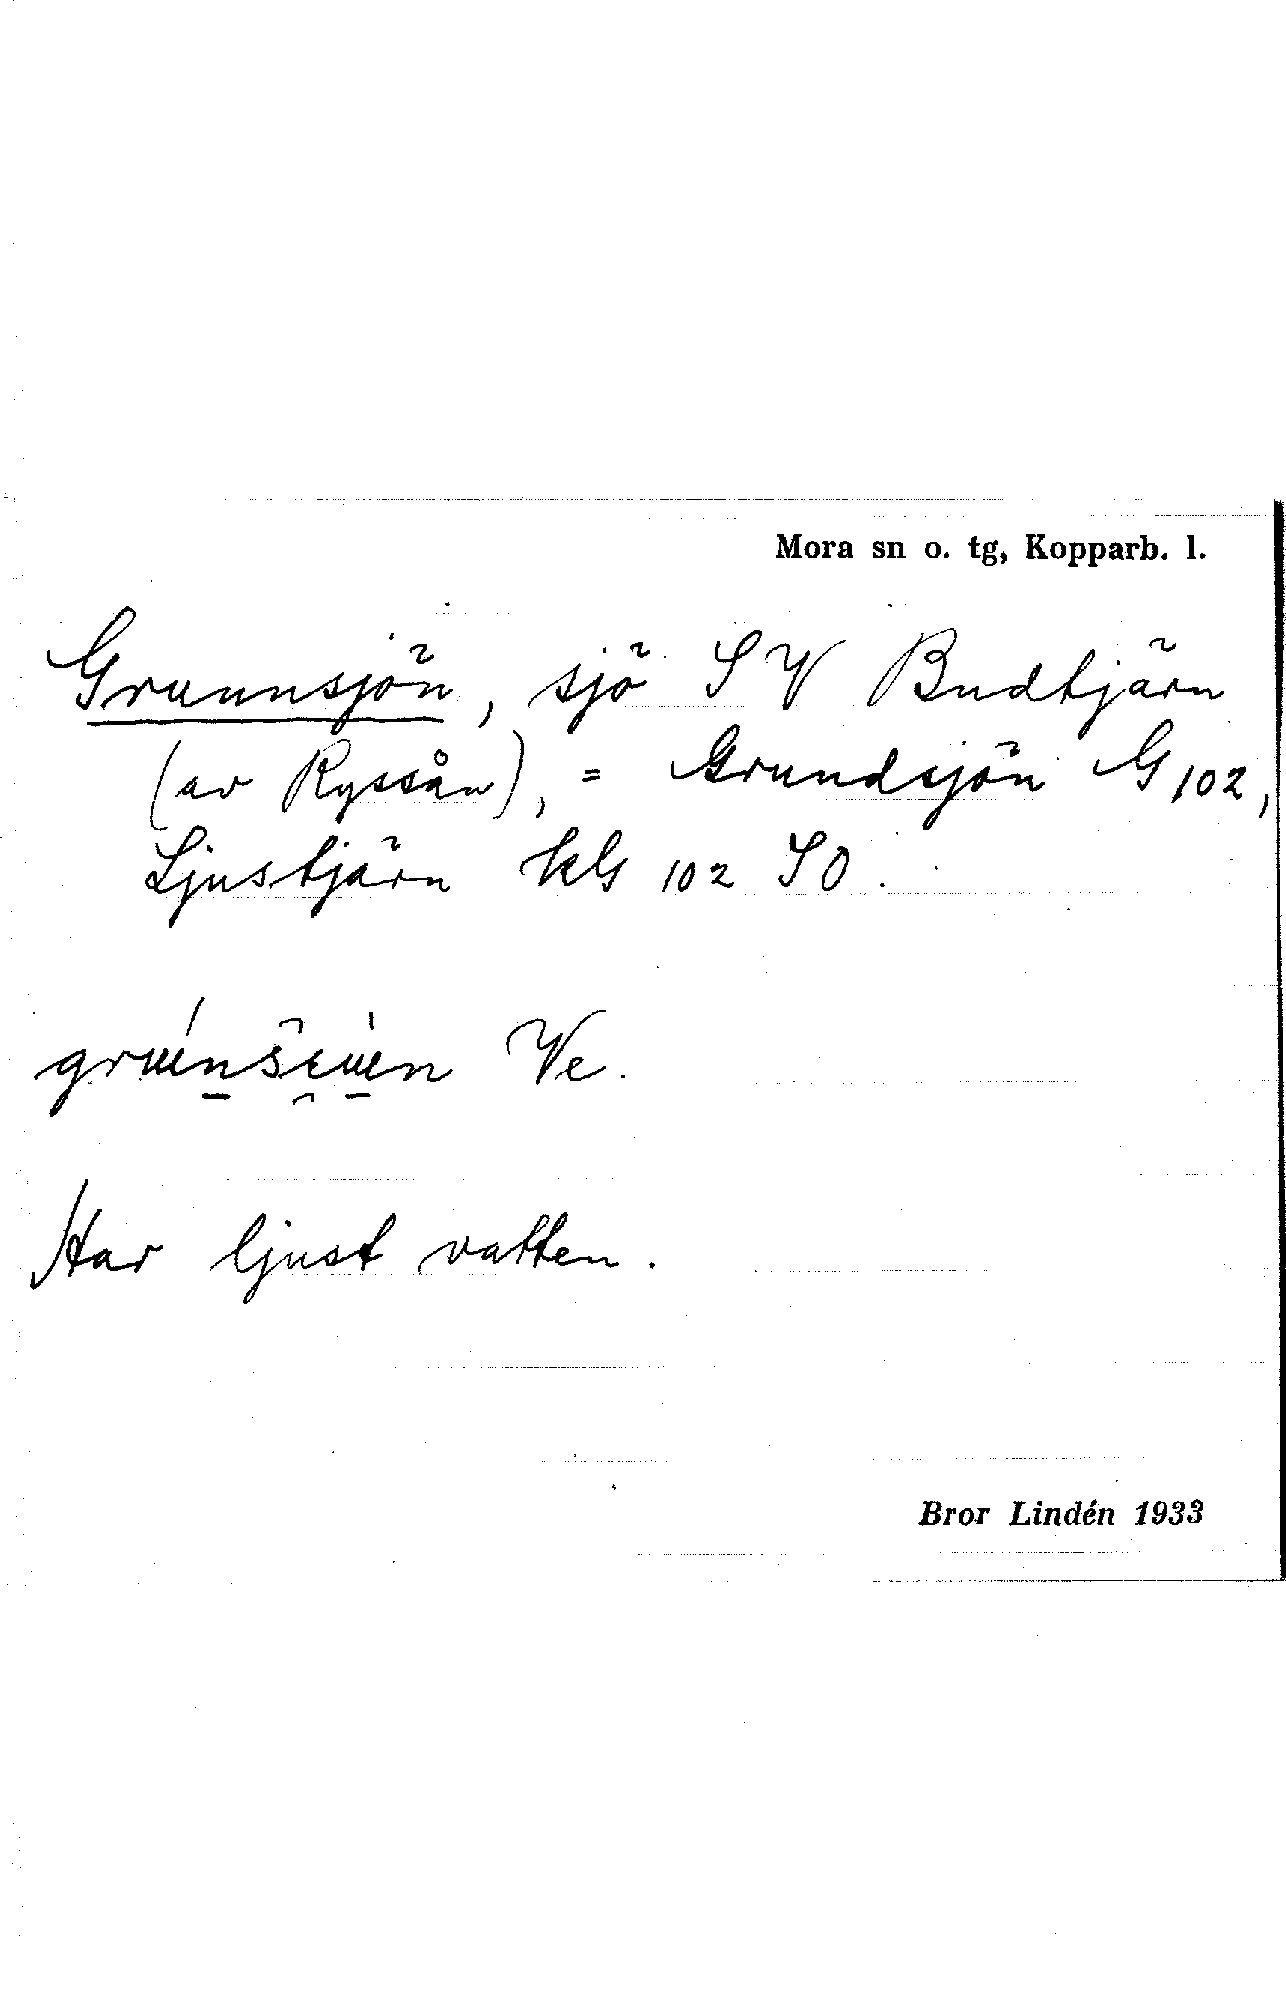 Mora sn o. tg, Kopparb. l.
Grunnsjön, sjö SV Budtjärn
(av Ryssån), = Grundsjön G 102,
Ljustjärn kG 102 SO.
Ve.
Har ljust vatten.
Bror Lindén 1933